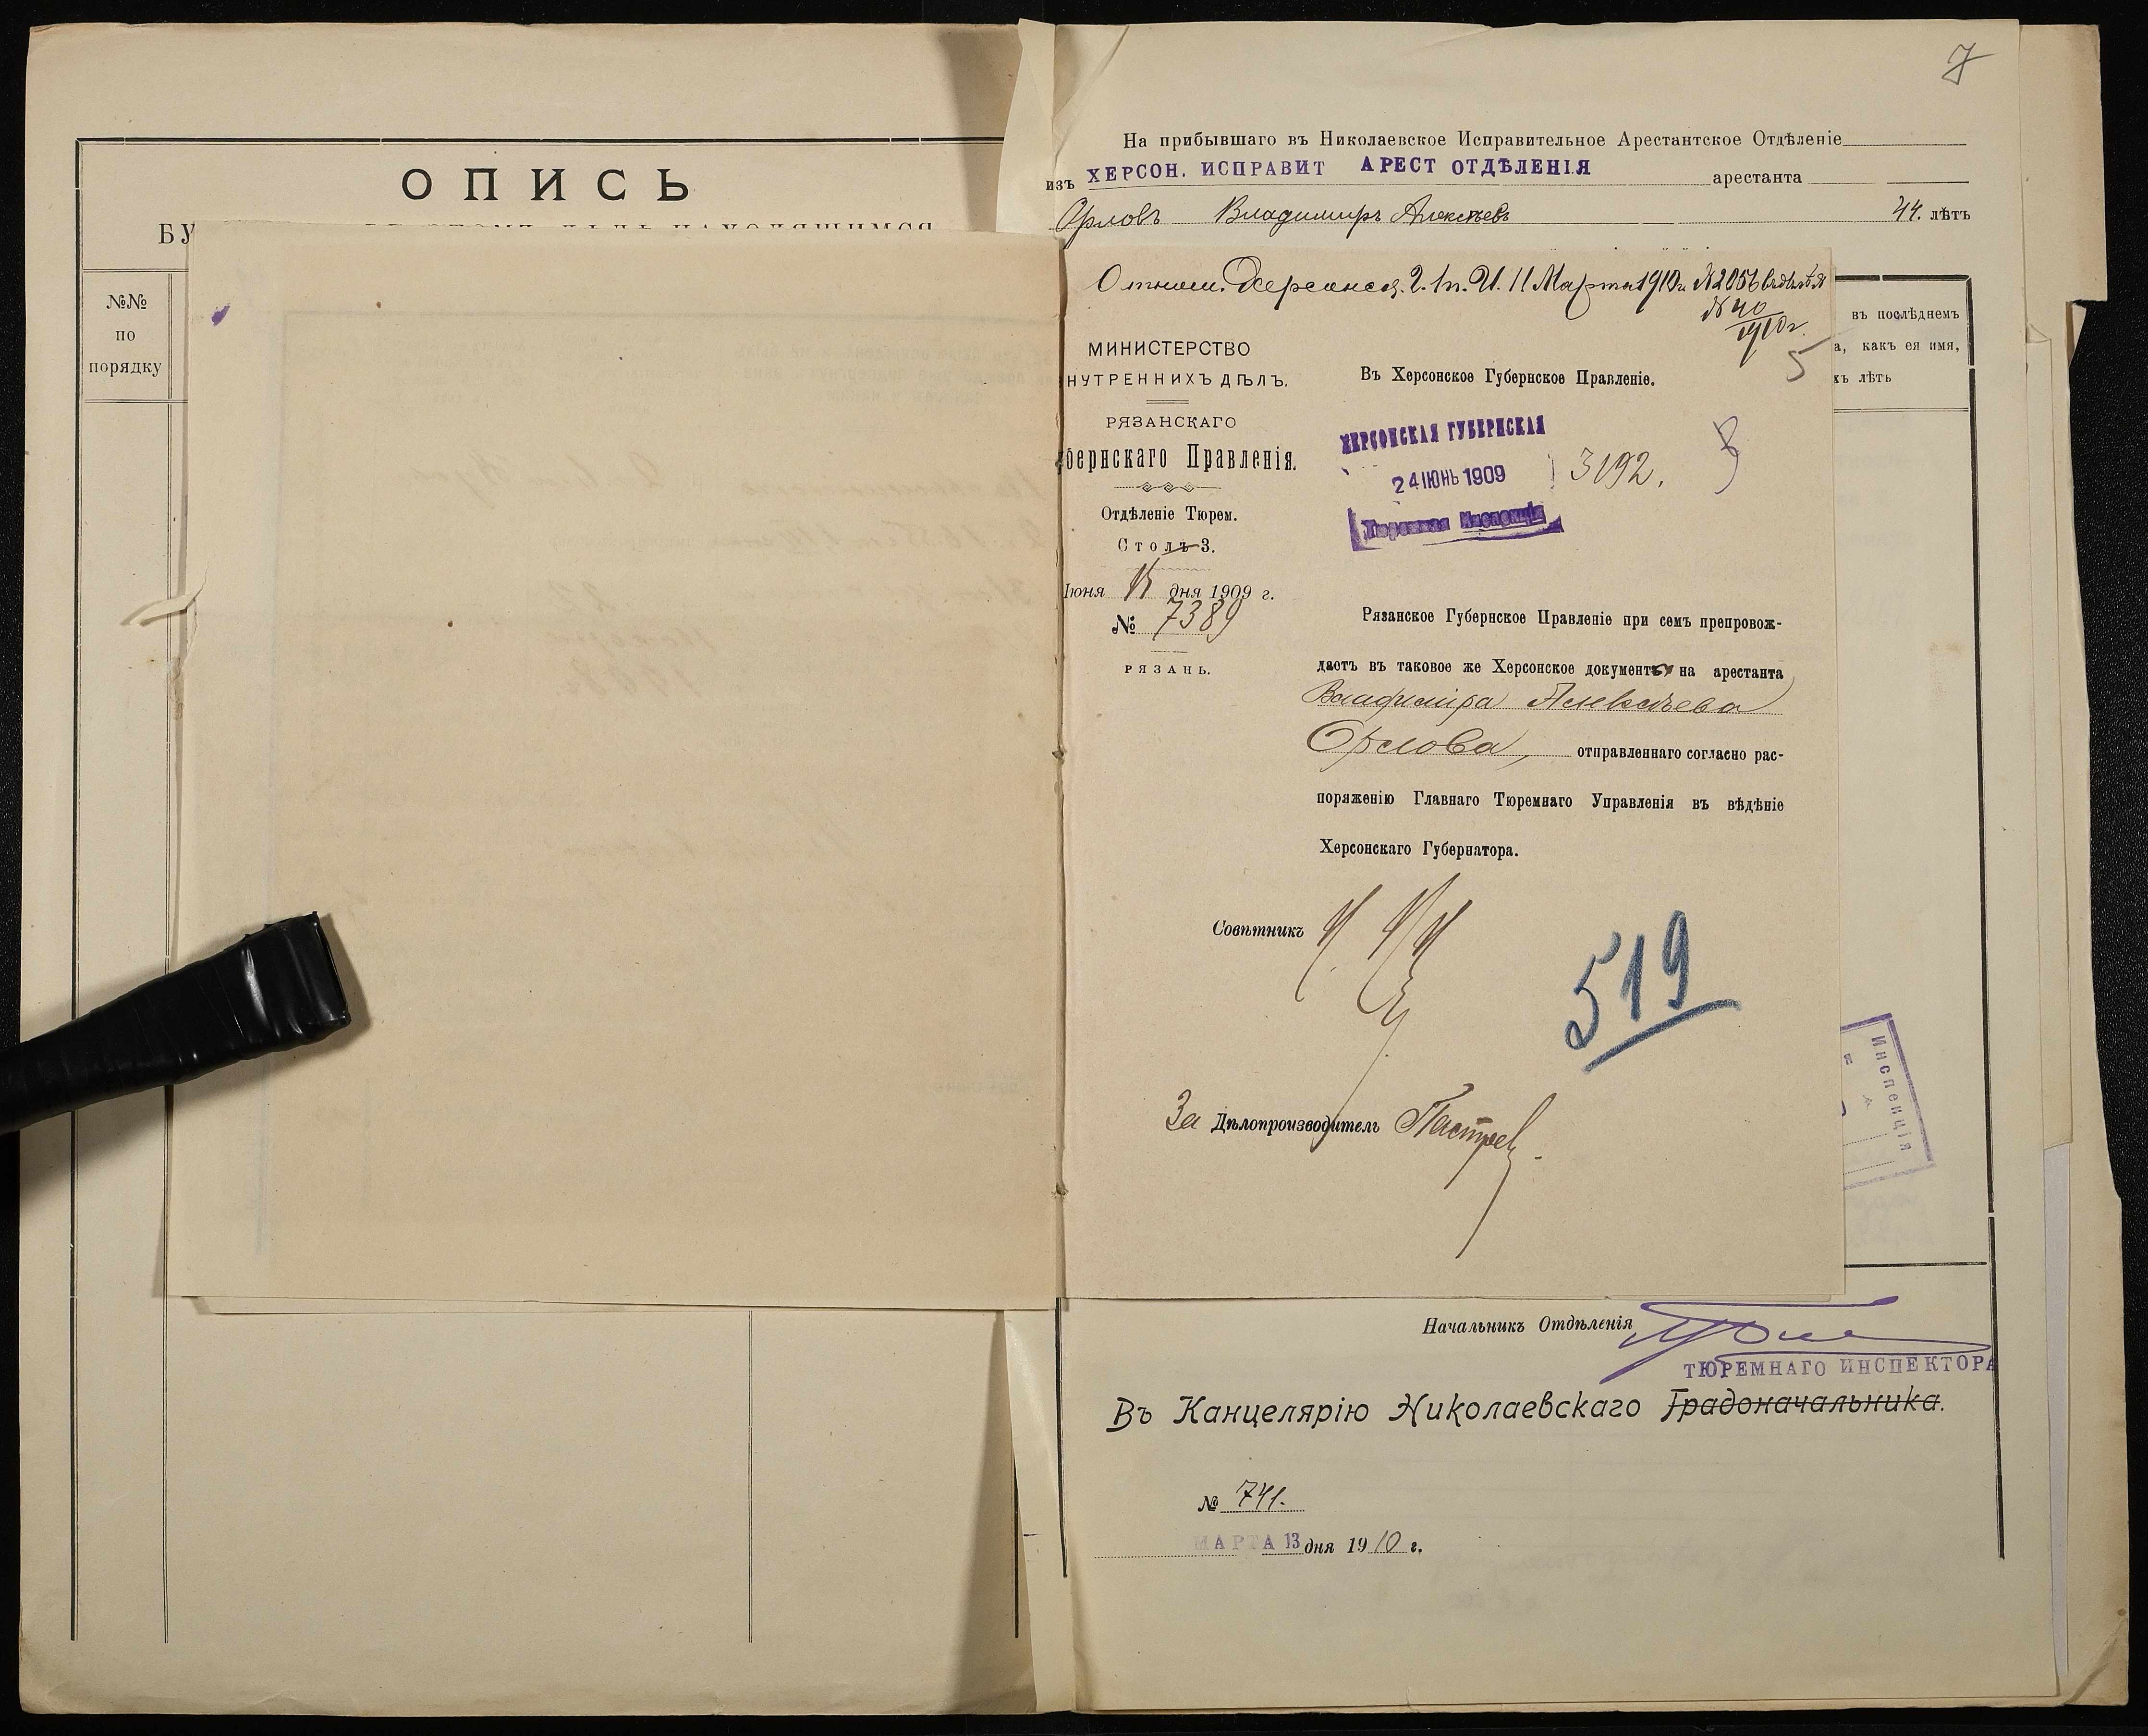 ОПИСЬ
№№
по
порядку
7
На прибывшаго въ Николаевское Исправительное Арестантское Отдѣленіе
изъ ХЕРСОН. ИСПРАВИТ АРЕСТ ОТДѢЛЕНІЯ арестанта
Орловъ Владимиръ Алексѣевъ 44. лѣтъ
11 Марта 1910 г. № 2056
№ 40
1910 г.
5
въ послѣднемъ
а, какъ ея имя,
хъ лѣтъ
МИНИСТЕРСТВО
НУТРЕННИХЪ ДѢЛЪ.
РЯЗАНСКАГО
бернскаго Правленія.
Отдѣленіе Тюрем.
Столъ 3.
Іюня 15 дня 1909 г.
№ 7389
РЯЗАНЬ.
Въ Херсонское Губернское Правленіе.
ХЕРСОНСКАЯ ГУБЕРНСКАЯ
24 ІЮНЬ 1909
3192.
Тюремная Инспекція
Рязанское Губернское Правленіе при семъ препровож-
даетъ въ таковое же Херсонское документы на арестанта
Владиміра Алексѣева
Орлова, отправленнаго согласно рас-
поряженію Главнаго Тюремнаго Управленія въ вѣдѣніе
Херсонскаго Губернатора.
Совѣтникъ
519
За Дѣлопроизводитель
Инспекція
Начальникъ Отдѣленія
ТЮРЕМНАГО ИНСПЕКТОРА
Въ Канцелярію Николаевскаго Градоначальника.
№ 741.
МАРТА 13 дня 1910 г.